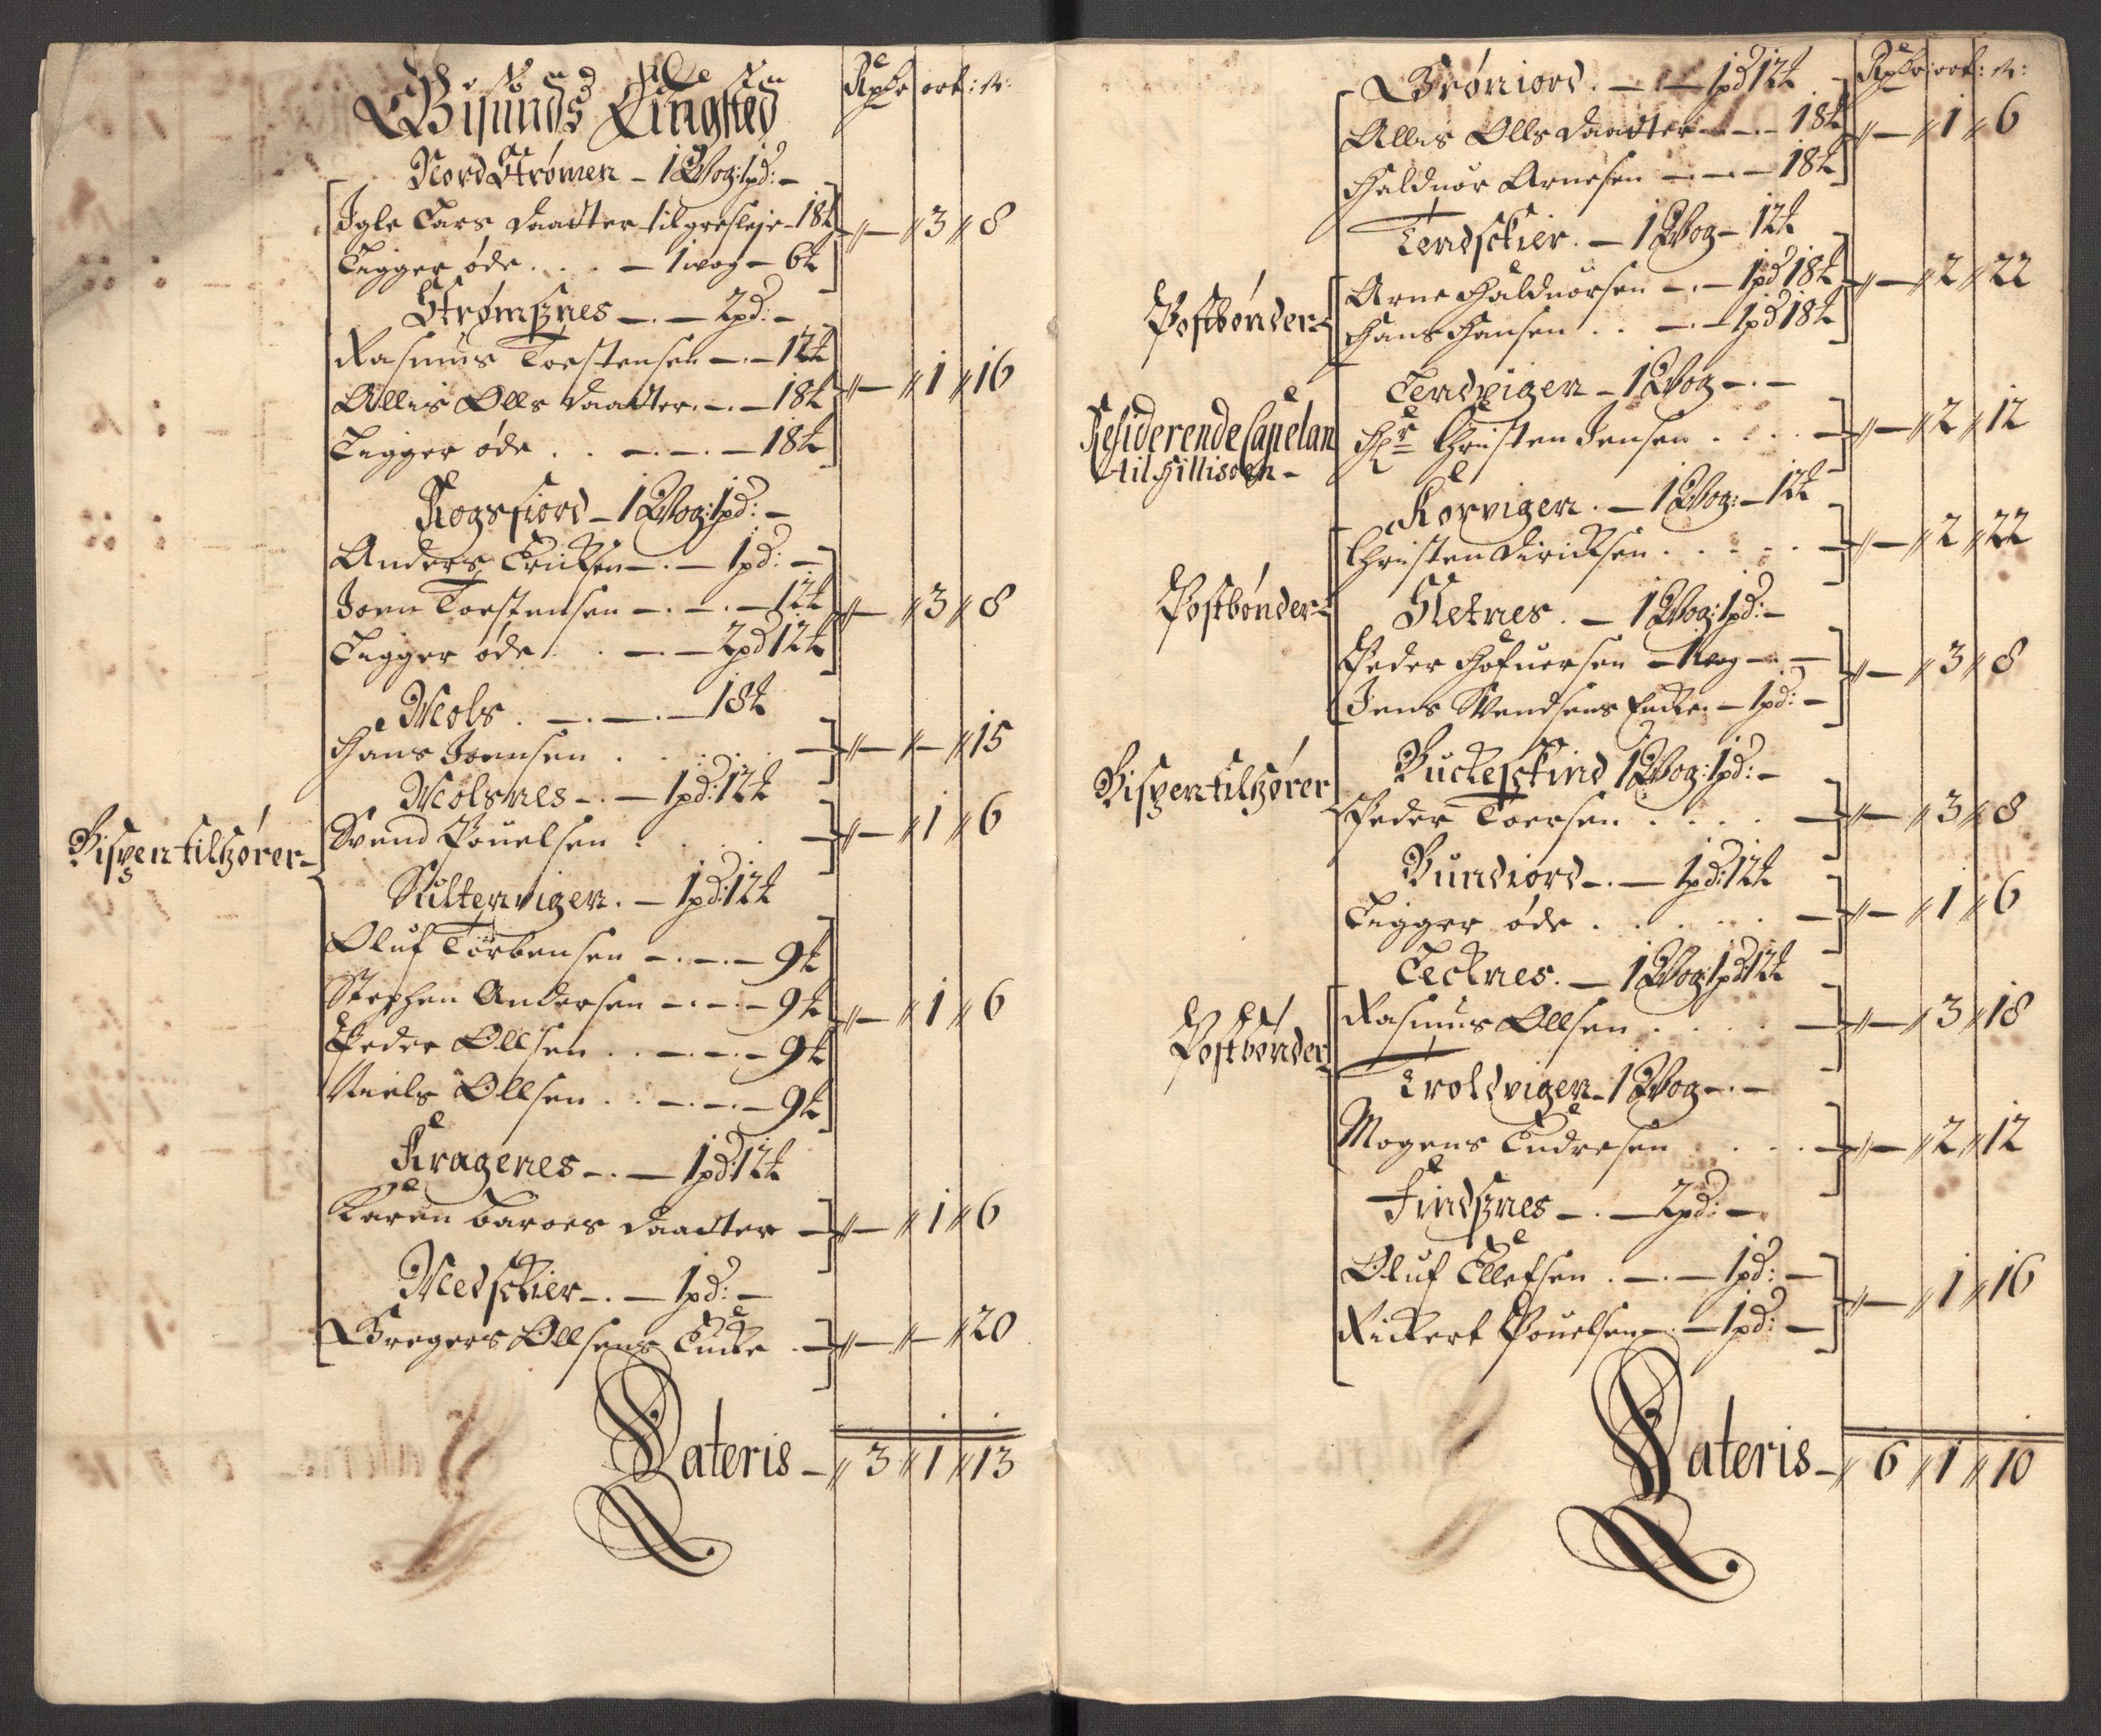 Gisunds Tingsted
Rdr ort: s:
Nord Strømen – 1 Wog: 1pd: –
Igle Lars Daatter til græsleje – 18 ℔ – 3 8
Ligger øde . . . – 1 wog – 6 ℔
Strømsnes – . – 2pd: –
Rasmus Torstensen – . – 12 ℔
Allis Olls Daatter . – . – 18 ℔ – 1 16
Ligger øde . . – . – . – 18 ℔
Rogsfiord – 1 Wog: 1pd: –
Anders Ericksen – . – 1pd: –
Joen Torstensen – . – . – 12 ℔ – 3 8
Ligger øde . . – . – 2pd 12 ℔
Mols . – . – . – 18 ℔
Hans Joensen . . . . – – – 15
Molsnes – . – 1pd: 12 ℔
Bispen tilhører –
Svend Pouelsen . . . . – – 1 6
Sultenvigen . – 1pd: 12 ℔
Oluf Torbensen – . – . – 9 ℔
Stephen Andersen – . – . – 9 ℔ – 1 6
Peder Ollsen . . – . – . – 9 ℔
Niels Ollsen . . – . – . – 9 ℔
Kragenes – . – 1pd: 12 ℔
Karen Baroes Daatter – – 1 6
Medschier – . – 1pd: –
Gregers Ollsens Encke . – – – 20
Lateris – 3 1 13
Rdr ort: s:
Grøniord . – . – 1pd 12 ℔
Allis Olls Daatter – . – . – 18 ℔ – 1 6
Halduor Arnesen – . – . – 18 ℔
Lendschier . – 1 Wog – 12 ℔
Postbønder
Arne Halduorsen – . – 1pd 18 ℔ – 2 22
Hans Hansen . . – . – 1pd 18 ℔
Lendvigen – 1 Wog – . –
Residerende Capelan
til Hillisøen –
Hr Christen Jensen . . . . – – 2 12
Korvigen . – 1 Wog: – 12 ℔
Christen Diricksen . . . . . – – 2 22
Postbønder
Sletnes . – 1 Wog: 1pd: –
Peder Hofuersen – 1 wog – . – – 3 8
Jens Svendsens Encke . – 1pd: –
Buckeschind 1 Wog: 1pd: –
Bispen tilhører
Peder Toersen . . . . – – 3 8
Bundiord – . – 1pd: 12 ℔
Ligger øde . . . . . – – 1 6
Lecknes . – 1 Wog: 1pd 12 ℔
Postbønder
Rasmus Ollsen . . . . – – 3 18
Trollvigen – 1 Wog – . –
Mogens Endresen . . . . – – 2 12
Findsnes – . – 2pd: –
Oluf Ellefsen . – . – 1pd: – – 1 16
Rickert Pouelsen – . – 1pd: –
Lateris – 6 1 10